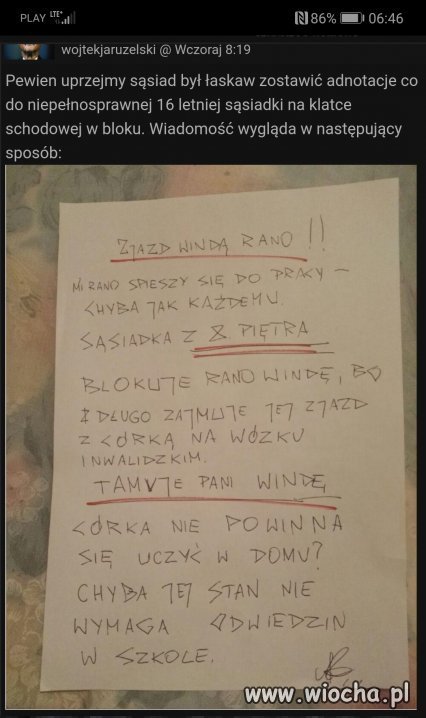 PLAY LTE 86% 06:46
wojtekjaruzelski @ Wczoraj 8:19
Pewien uprzejmy sąsiad był łaskaw zostawić adnotacje co
do niepełnosprawnej 16 letniej sąsiadki na klatce
schodowej w bloku. Wiadomość wygląda w następujący
sposób:
ZJAZD WINDĄ RANO !!
MI RANO SPIESZY SIĘ DO PRACY –
CHYBA JAK KAŻDEMU.
SĄSIADKA Z 8 PIĘTRA
BLOKUJE RANO WINDĘ, BO
DŁUGO ZAJMUJE JEJ ZJAZD
Z CÓRKĄ NA WÓZKU
INWALIDZKIM.
TAMUJE PANI WINDĘ,
CÓRKA NIE POWINNA
SIĘ UCZYĆ W DOMU?
CHYBA JEJ STAN NIE
WYMAGA ODWIEDZIN
W SZKOLE.
www.wiocha.pl